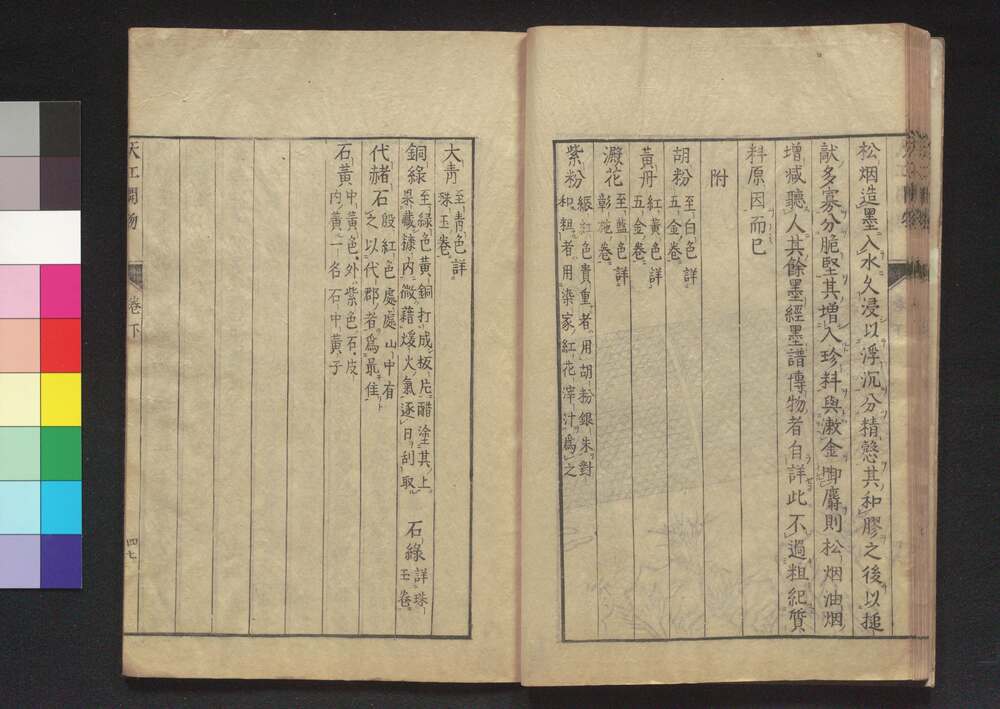 松烟造墨入水久浸以浮沉分精慤其和膠之後以搥
敲多寡分脆堅其増入珍料與漱金啣麝則松烟油烟
增減聽人其餘墨經墨譜博物者自詳此不過粗紀質
料原因而已
附
胡粉 至白色詳
五金卷
黃丹 紅黃色詳
五金卷
澱花 至藍色詳
彰施卷
紫粉 縓紅色貴重者用胡粉銀朱對
和粗者用染家紅花滓汁爲之
大青 至青色詳
珠玉卷
銅綠 至綠色黃銅打成板片醋塗其上
裹藏糠内微藉煖火氣逐日刮取
石綠 詳珠
玉卷
代赭石 殷紅色處處山中有
之以代郡者爲最佳
石黃 中黃色外紫色石皮
内黃一名石中黃子
天工開物
卷下
四七